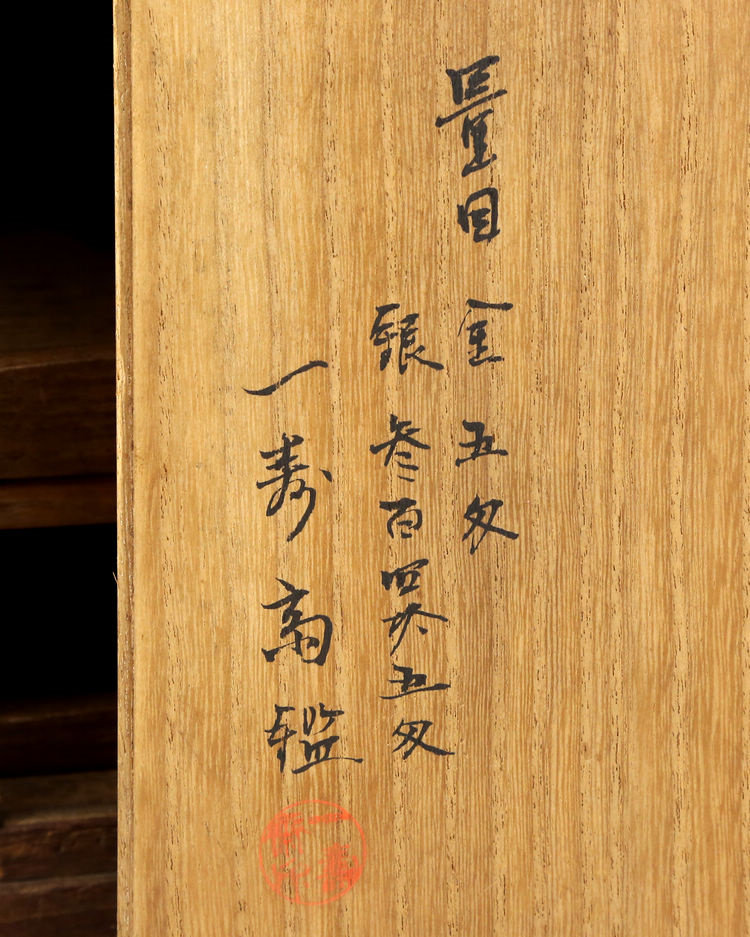 量目 金 五匁
銀 参百四拾五匁
一寿高鑑